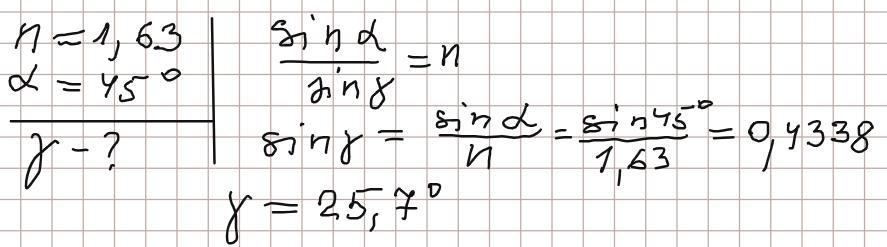 n = 1,63
α = 45°
γ - ?
sin α / sin γ = n
sin γ = sin α / n = sin 45° / 1,63 = 0,4338
γ = 25,7°